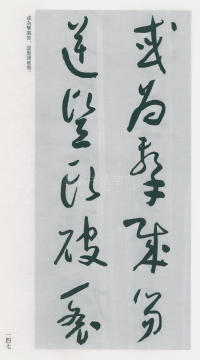 或為擊賊笏
逆豎頭破裂
或為擊賊笏，逆豎頭破裂。
一四七